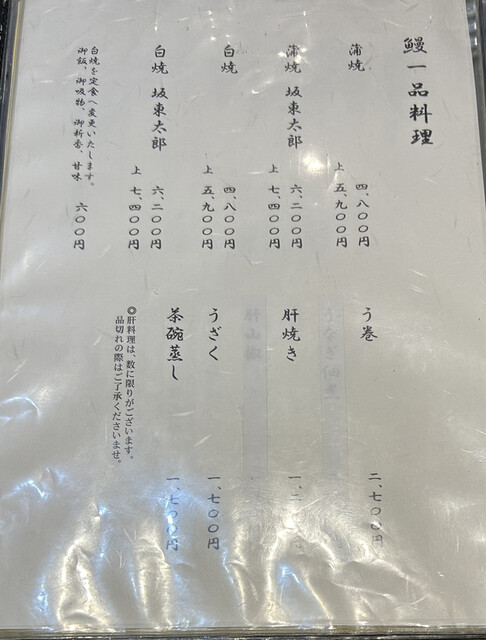 鰻一品料理
蒲焼
四、八〇〇円
上 五、九〇〇円
蒲焼 坂東太郎
六、二〇〇円
上 七、四〇〇円
白焼
四、八〇〇円
上 五、九〇〇円
白焼 坂東太郎
六、二〇〇円
上 七、四〇〇円
白焼を定食へ変更いたします。
御飯、御吸物、御新香、甘味 六〇〇円
う巻 二、七〇〇円
肝焼き 一、二
うざく 一、七〇〇円
茶碗蒸し 一、七〇〇円
◎肝料理は、数に限りがございます。
品切れの際はご了承くださいませ。